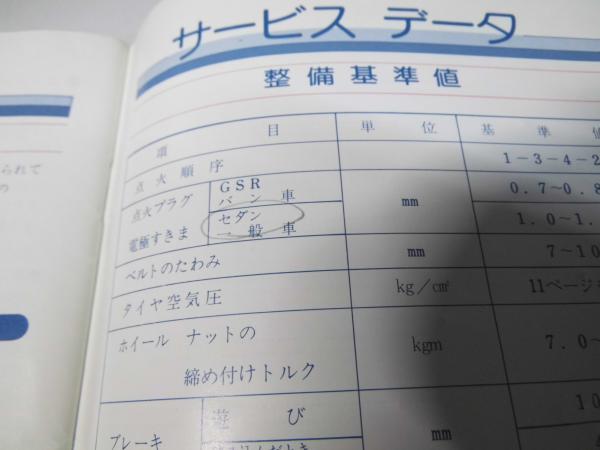 サービス データ
整備基準値
項 目 単 位 基 準 値
点火順序 1-3-4-2
点火プラグ GSR
バン 車 mm 0.7~0.8
電極すきま セダン
一般車 1.0~1.
ベルトのたわみ mm 7~10
タイヤ空気圧 kg/cm² 11ページ
ホイール ナットの
締め付けトルク kgm 7.0~
ブレーキ 遊 び mm 10
られて
の